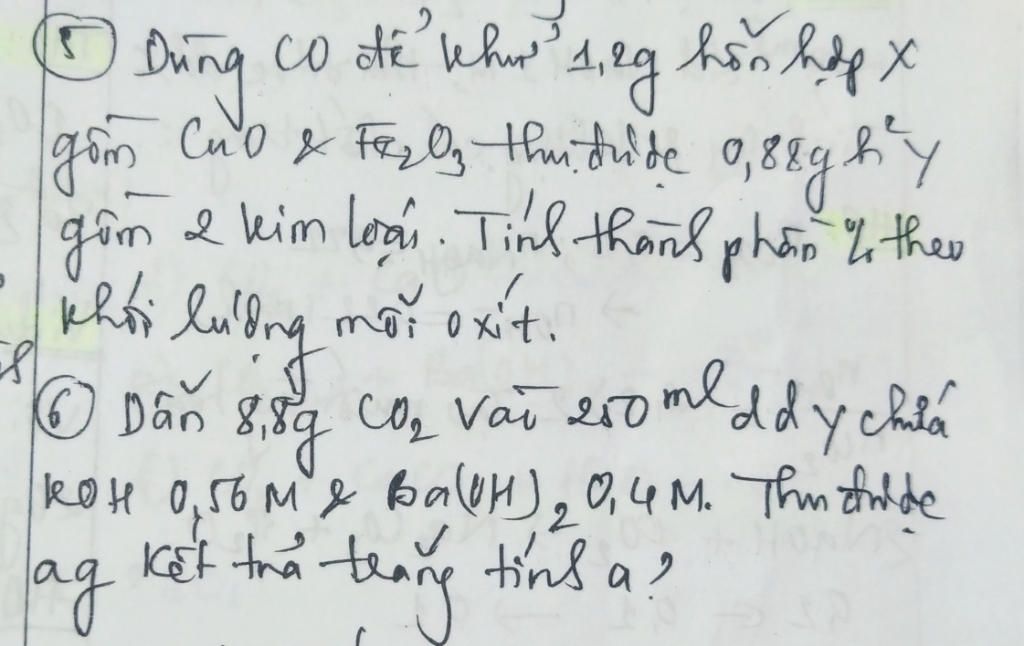 ⑤ Dùng CO để khử 1,2g hỗn hợp X
gồm CuO & Fe₂O₃ thu được 0,88g h² Y
gồm 2 kim loại. Tính thành phần % theo
khối lượng mỗi oxit.
⑥ Dẫn 8,8g CO₂ vào 250 ml dd Y chứa
KOH 0,56 M & Ba(OH)₂ 0,4 M. Thu được
ag kết tủa trắng tính a?